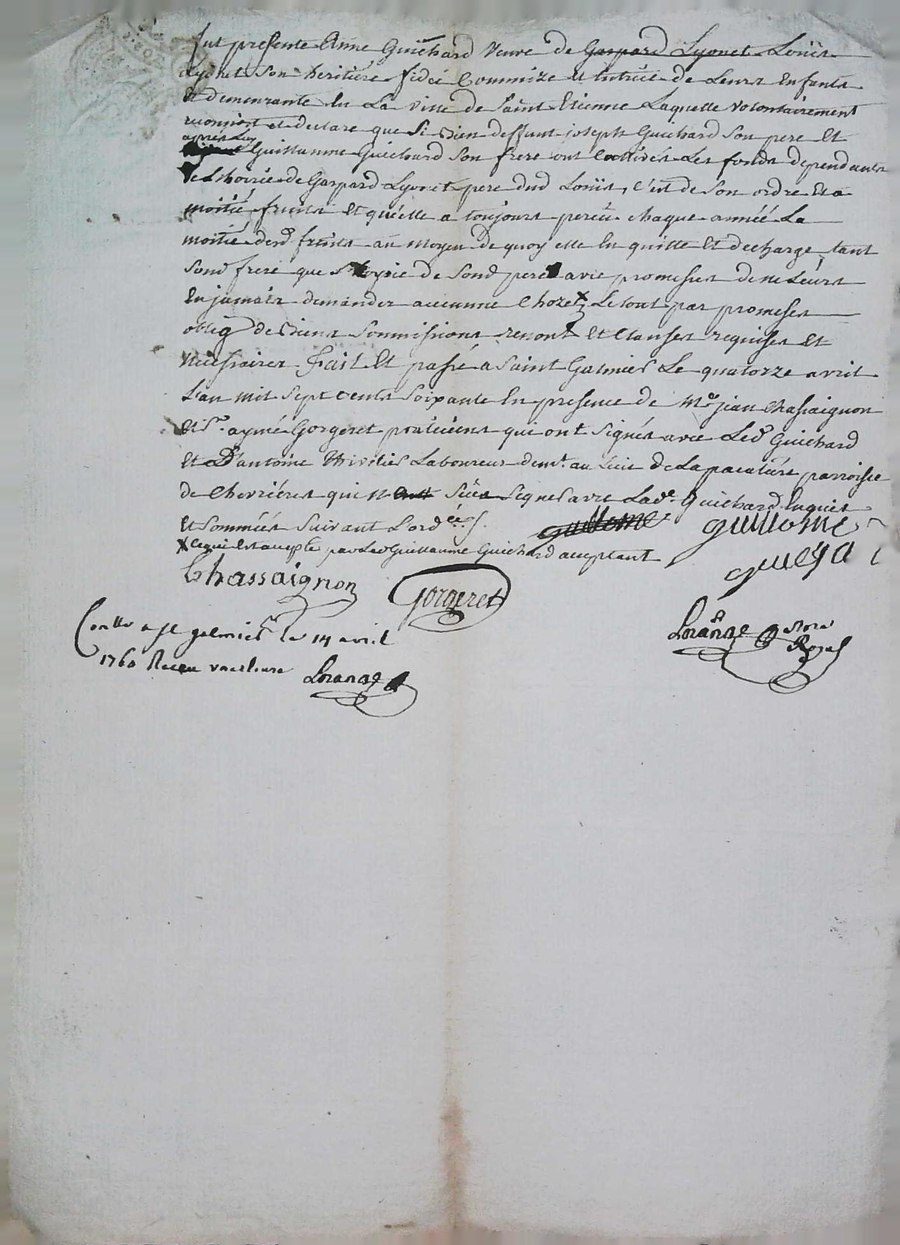 fut presente Anne Guichard veuve de Gaspard Lyonet Loüis
Lyonet son heritiere fidei Commize et tutrice de Leurs Enfants
et demeurante En La ville de Saint Etienne Laquelle volontairement
reconnoit et declare que Si bien deffunt joseph Guichard Son pere Et
apres Luy
Guillaume Guichard Son frere ont Les fonds dependants
de L'hoirie de Gaspard Lyonet pere dud Loüis, c'est de Son ordre Et a
moitié fruits Et qu'elle a toujours perçu chaque année La
moitié desd fruits au moyen de quoy elle En quitte Et decharge tant
Sond frere que de Sond pere avec promesses de ne Leurs
En jamais demander aucunne Choze x Le tout par promesses
oblig de biens Sommissions renont Et Clauses requises Et
necessaires fait Et passé a Saint Galmier Le quatorze avril
L'an mil Sept Cents Soixante En presence de Me jean Chassaignon
Et Sr. aymé Gorgeret praticiens qui ont Signés avec Led Guichard
Et D'antoine Laboureur demt. au Lieu de La parroisse
de Chevrieres qui n'ont Sçeu Signer avec Lade. Guichard Enquis
Et Sommés Suivant L'ordce.
guilleme guillome
x Ce qui Est accepté par Led Guillaume Guichard acceptant
gueGa
Chassaignon
Gorgeret
Lorange Nore Royal
Conllé a St galmier le 14 avril
1760 Receu
Lorange